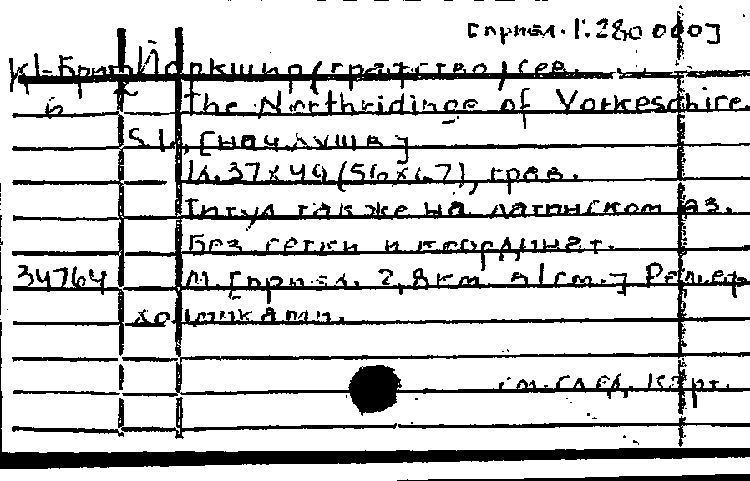 [прибл. 1:280 000]
К1-Брит Йоркшир (графство) сев.
6 The Northridinge of Yorkeschire
S.l., [нач. XVIII в]
1 л. 37х49 (56х67), грав.
Титул также на латинском яз.
Без сетки и координат.
34764 М. [прибл. 2,8 км в 1 см.] Рельеф
холмиками.
см. след. карт.